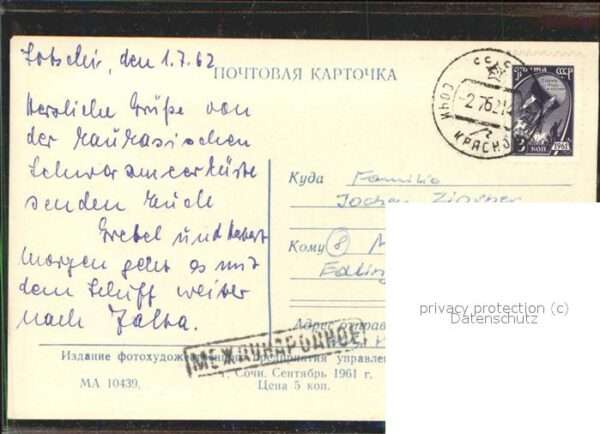 Sotschi, den 1.7.62
ПОЧТОВАЯ КАРТОЧКА
Herzliche Grüße von
der kaukasischen
Schwarzmeerküste
senden Euch
Gretel und
Morgen geht es mit
dem Schiff weiter
nach Jalta.
СССР
СОЧИ
КРАСНО
ПОЧТА СССР
КОП
1961
Куда Familie
Jochen
Кому 8 M
Адрес отправ
МЕЖДУНАРОДНОЕ
Издание фотохудожест предприятия управле
г. Сочи. Сентябрь 1961 г.
МА 10439. Цена 5 коп.
privacy protection (c)
Datenschutz